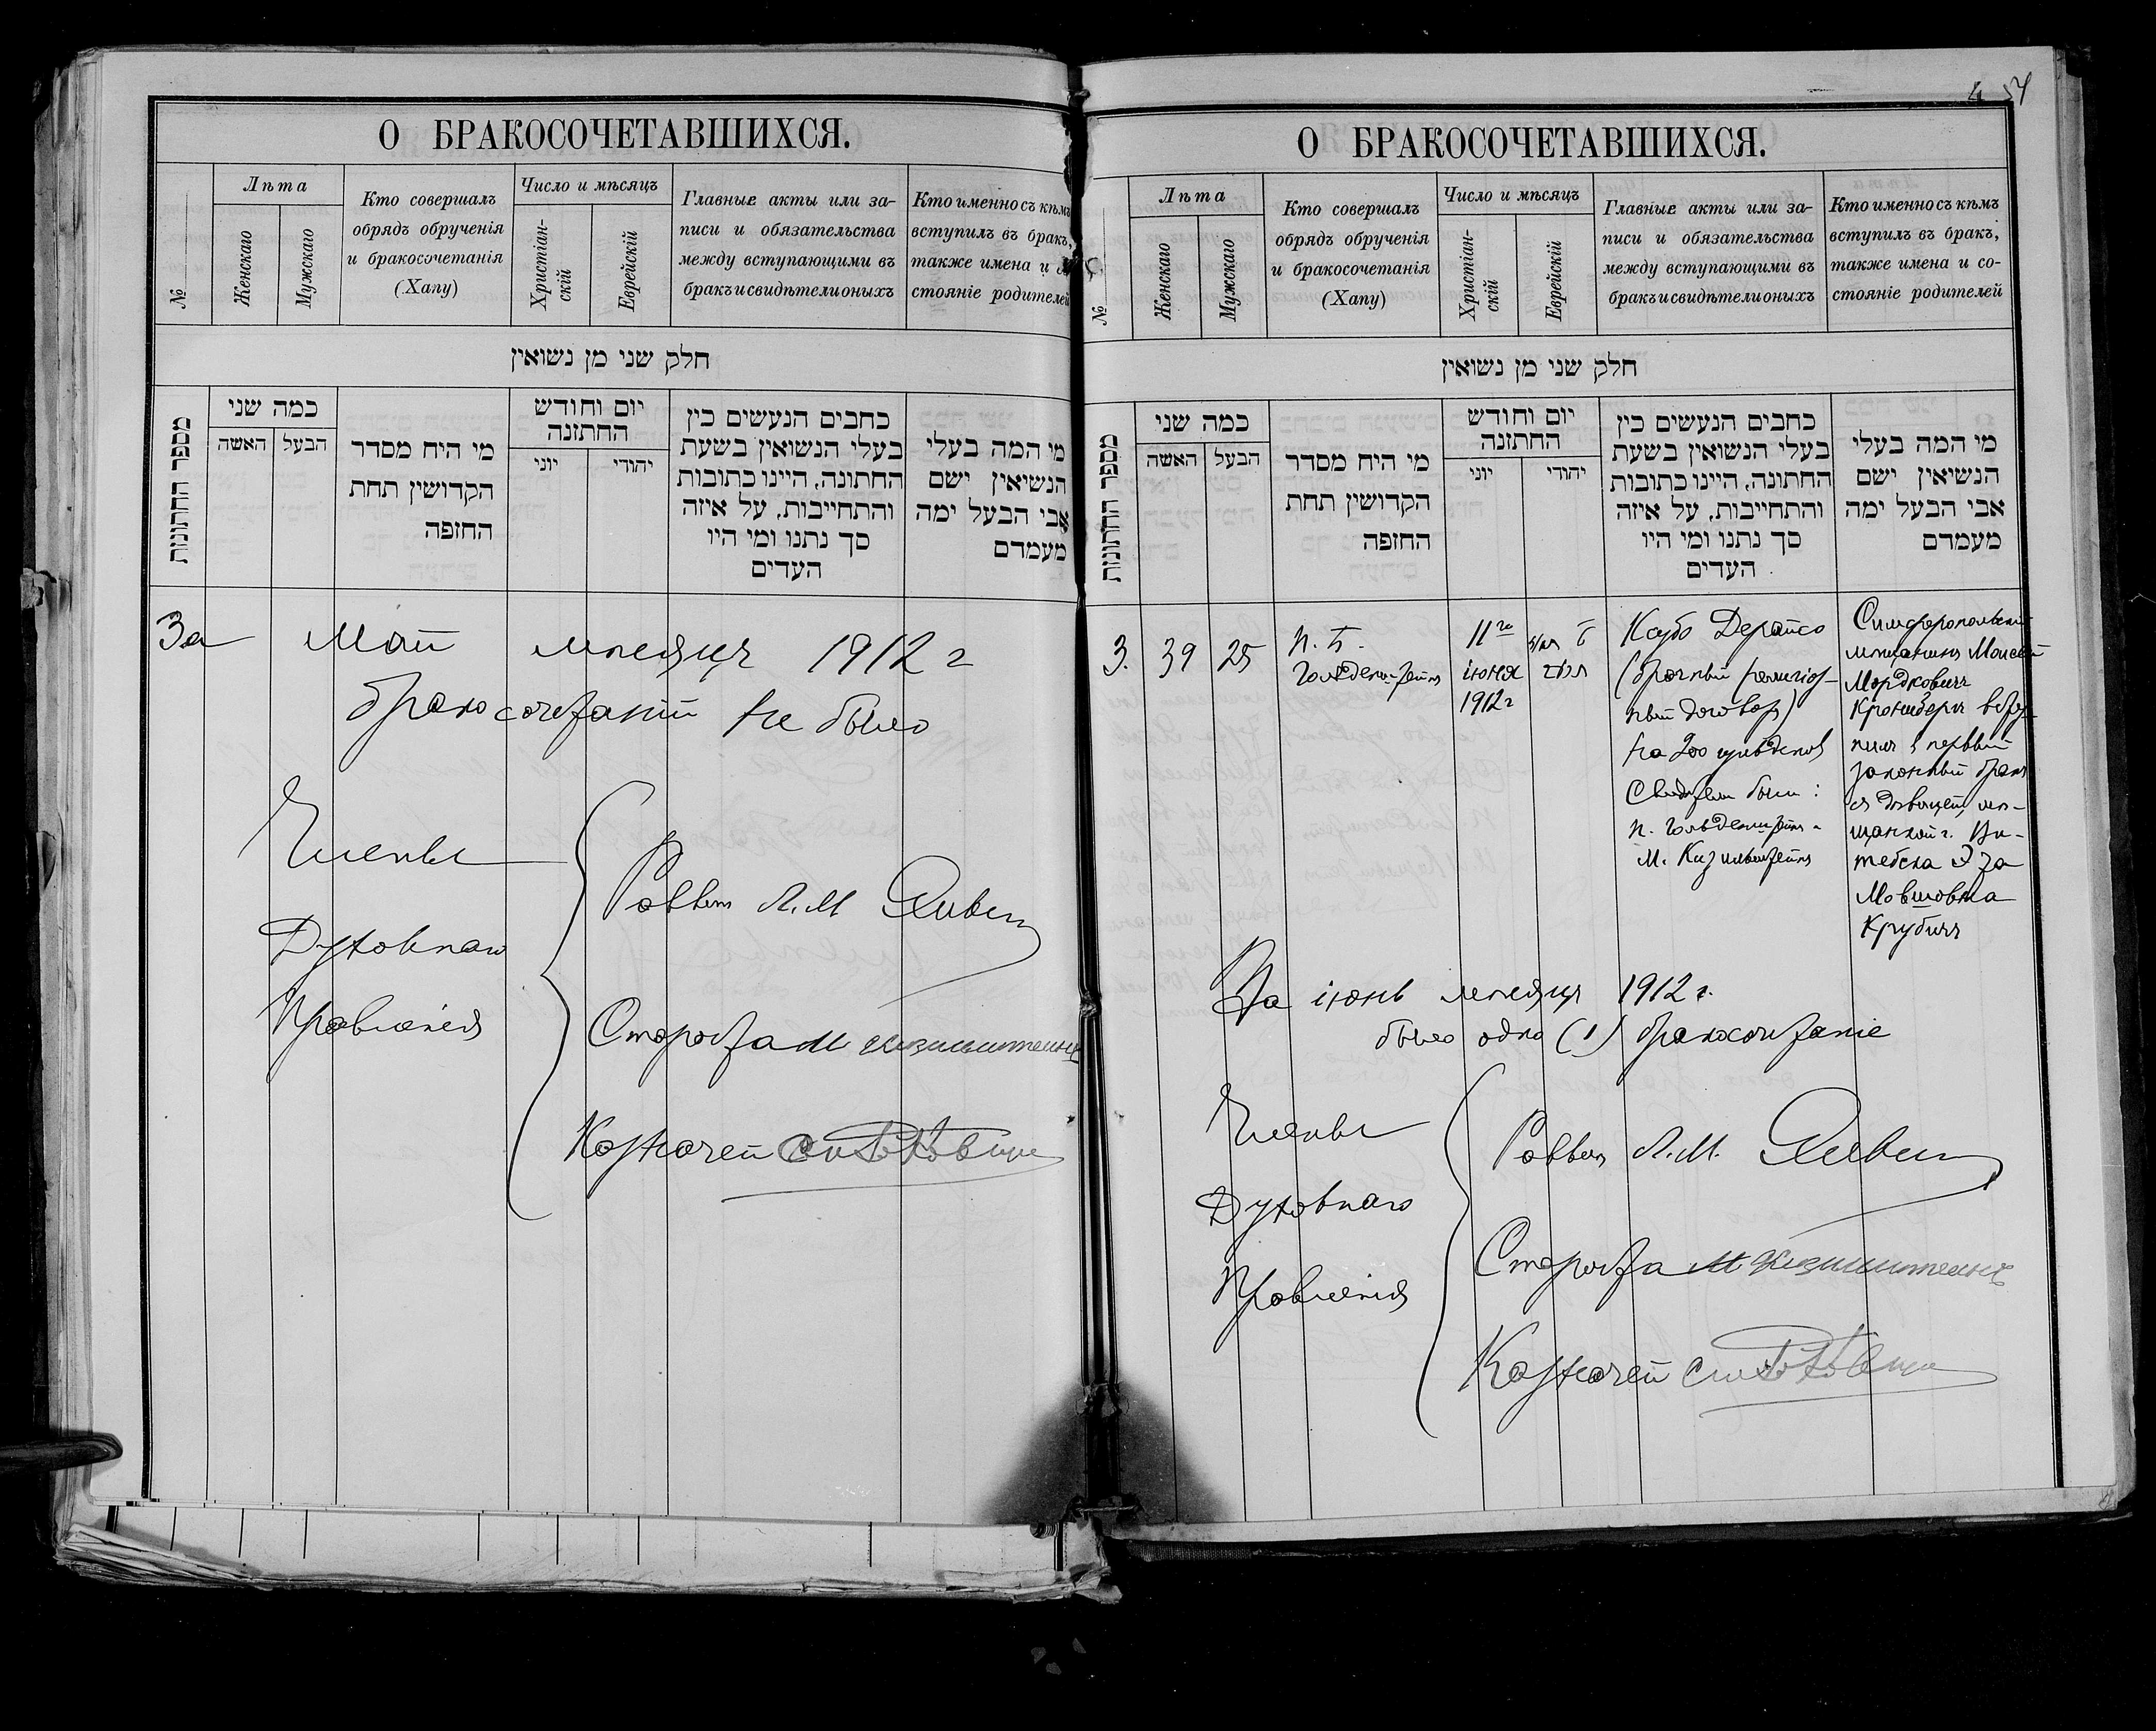 О БРАКОСОЧЕТАВШИХСЯ.
№
Лѣта
Женскаго
Мужскаго
Кто совершалъ
обрядъ обрученія
и бракосочетанія
(Хапу)
Число и мѣсяцъ
Христіан-
скій
Еврейскій
Главные акты или за-
писи и обязательства
между вступающими въ
бракъ и свидѣтели оныхъ
Кто именно съ кѣмъ
вступилъ въ бракъ,
также имена и
стояніе родителей
חלק שני מן נשואין
מספר החתונות
כמה שני
האשה
הבעל
מי היח מסדר
הקדושין תחת
החזפה
יום וחודש
החתזנה
יוני
יהודי
כחבים הנעשים כין
בעלי הנשואין בשעת
החתונה, היינו כתובות
והתחייבות, על איזה
סך נתנו ומי היו
העדים
מי המה בעלי
הנשיאין ישם
אבי הבעל ימה
מעמדם
За Май мѣсяцъ 1912 г
бракосочетаній не было
Члены
Духовнаго
Правленія
Раввин Л. М.
Староста М
Казначей
О БРАКОСОЧЕТАВШИХСЯ.
№
Лѣта
Женскаго
Мужскаго
Кто совершалъ
обрядъ обрученія
и бракосочетанія
(Хапу)
Число и мѣсяцъ
Христіан-
скій
Еврейскій
Главные акты или за-
писи и обязательства
между вступающими въ
бракъ и свидѣтели оныхъ
Кто именно съ кѣмъ
вступилъ въ бракъ,
также имена и со-
стояніе родителей
חלק שני מן נשואין
מספר החתונות
כמה שני
האשה
הבעל
מי היח מסדר
הקדושין תחת
החזפה
יום וחודש
החתזנה
יוני
יהודי
כחבים הנעשים כין
בעלי הנשואין בשעת
החתונה, היינו כתובות
והתחייבות, על איזה
סך נתנו ומי היו
העדים
מי המה בעלי
הנשיאין ישם
אבי הבעל ימה
מעמדם
3.
39
25
П. Б.
Гольденштейнъ
11го
іюня
1912 г
Ксубо Дерайсо
(брачный религіоз-
ный договоръ)
на 200 гульденов
Свидѣтели были:
П. Гольденштейнъ и
М. Кизильштейнъ
Симферопольскій
мѣщанинъ Моисей
Мордковичъ
Кронгбергъ всту-
пилъ в первый
законный бракъ
съ дѣвицей, мѣ-
щанкой г. Ви-
тебска Эза
Мовшовна
Крубичъ
За іюнь мѣсяцъ 1912 г.
было одно (1) бракосочетаніе
Члены
Духовнаго
Правленія
Раввин Л. М.
Староста М
Казначей